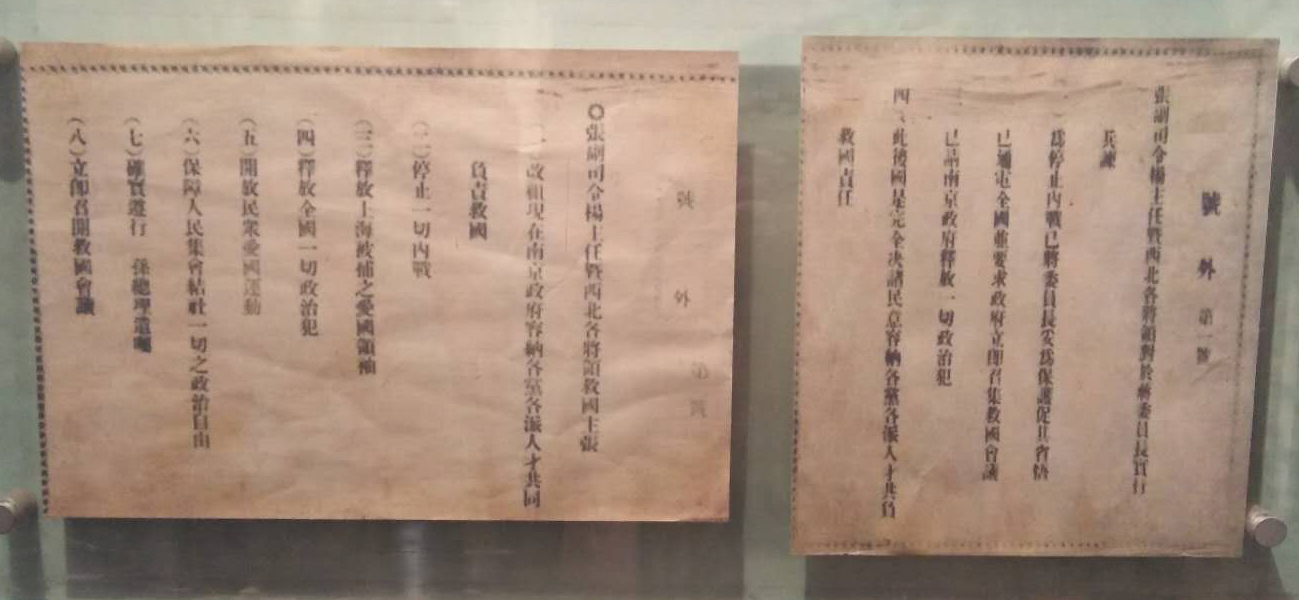 號外 第一號
張副司令楊主任暨西北各將領對於蔣委員長實行
兵諫
一、爲停止內戰已將委員長妥爲保護促其省悟
已通電全國並要求政府立卽召集救國會議
已請南京政府釋放一切政治犯
四、此後國是完全决諸民意容納各黨各派人才共負
救國責任
號外 第 號
◎張副司令楊主任暨西北各將領救國主張
(一)改組現在南京政府容納各黨各派人才共同
負責救國
(二)停止一切內戰
(三)釋放上海被捕之愛國領袖
(四)釋放全國一切政治犯
(五)開放民衆愛國運動
(六)保障人民集會結社一切之政治自由
(七)確實遵行 孫總理遺囑
(八)立卽召開救國會議